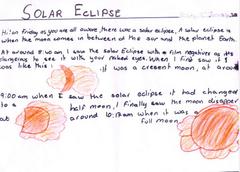 SOLAR ECLIPSE
Hi! on Friday as you are all aware, there was a solar eclipse, A solar eclipse is
when the moon comes in between of the sun and the planet Earth.
At around 8:40 am I saw the Solar Eclipse with a film negatives as its
dangerous to see it with your naked eyes. When I first saw it
was like this It was a cresent moon, at around
9:00 am when I saw the solar eclipse it had changed
to a half moon, I finally saw the moon disapper
around 10:12am when it was a
full moon.